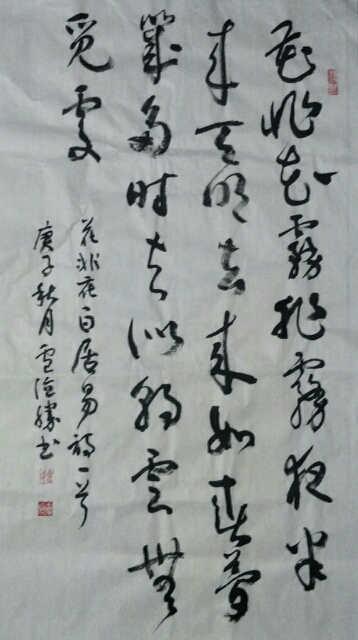 花非花霧非霧夜半
來天明去來如春夢
幾多時去似朝雲無
覓處
花非花白居易詩一首
庚子秋月書